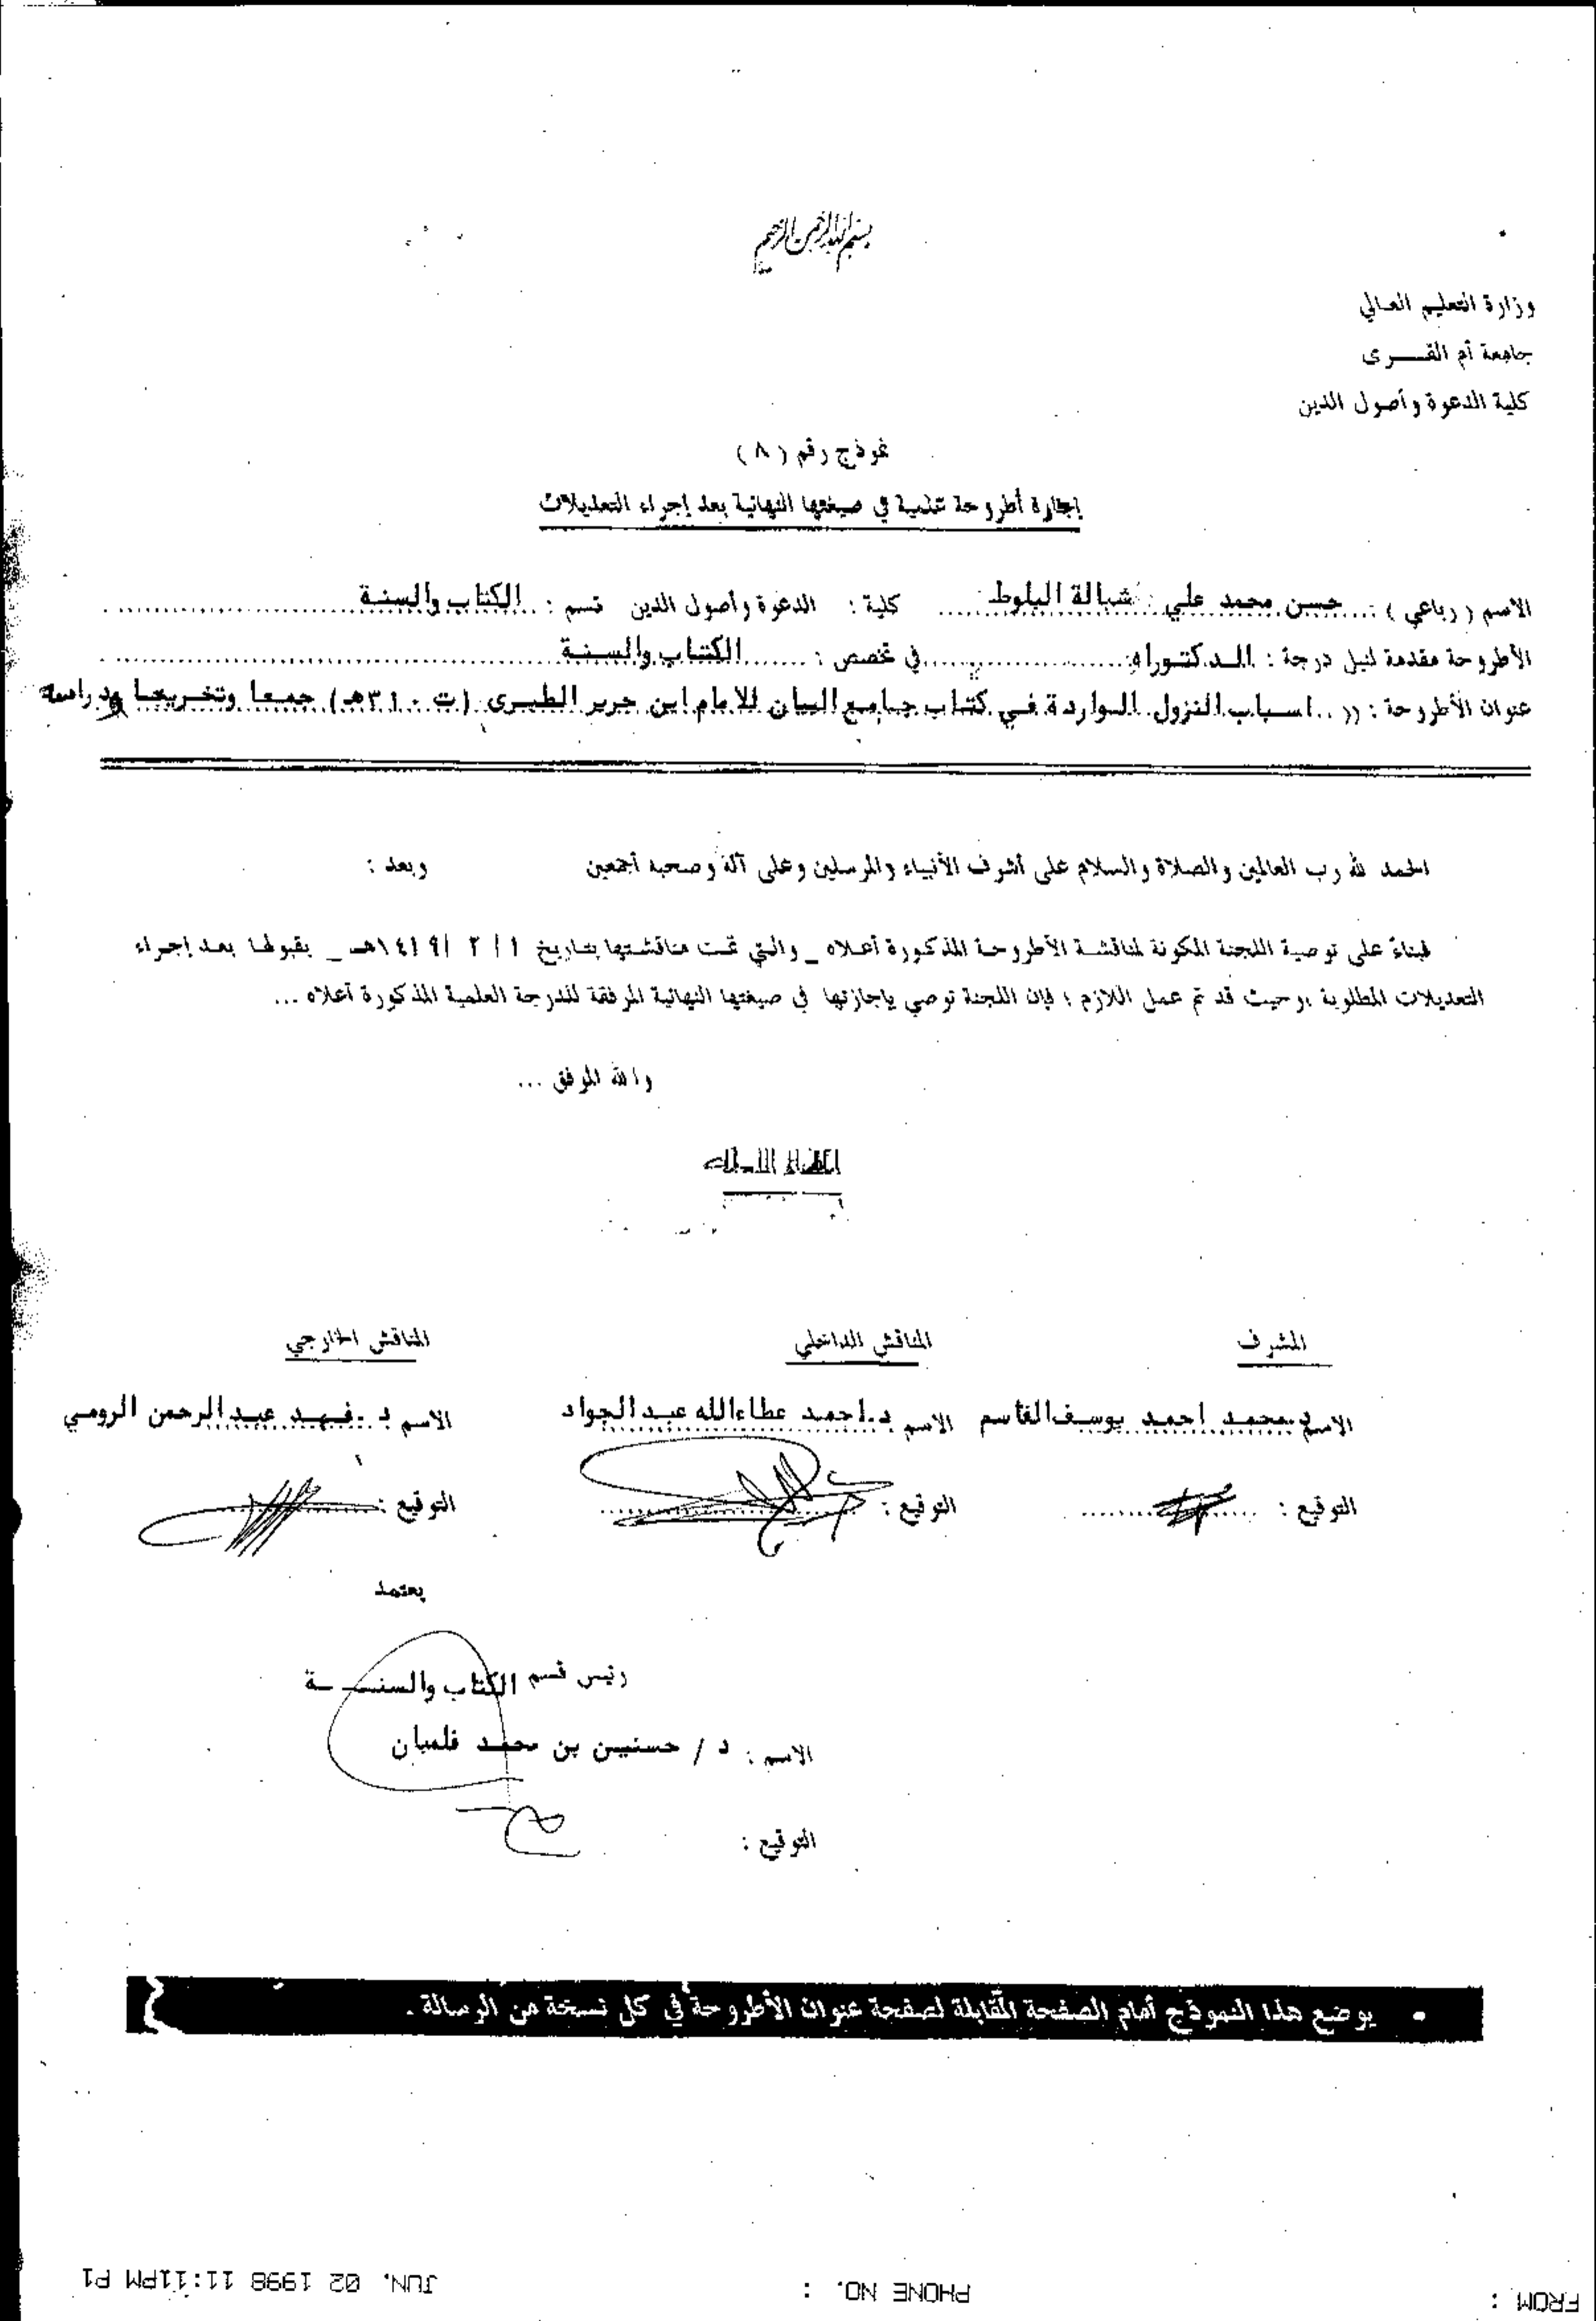 بسم الله الرحمن الرحيم
وزارة التعليم العالي
جامعة أم القـــرى
كلية الدعوة وأصول الدين
نموذج رقم ( ٨ )
إجازة أطروحة علمية في صيغتها النهائية بعد إجراء التعديلات
الاسم ( رباعي ) : حسن محمد علي شبالة البلوط كلية : الدعوة وأصول الدين قسم : الكتاب والسنة
الأطروحة مقدمة لنيل درجة : الدكتوراه في تخصص : الكتاب والسنة
عنوان الأطروحة : (( .. اسباب النزول الواردة في كتاب جامع البيان للامام ابن جرير الطبرى (ت ٣١٠هـ) جمعا وتخريجا ودراسة
الحمد لله رب العالمين والصلاة والسلام على أشرف الأنبياء والمرسلين وعلى آله وصحبه أجمعين وبعد :
فبناءً على توصية اللجنة المكونة لمناقشة الأطروحة المذكورة أعلاه _ والتي تمت مناقشتها بتاريخ ١ / ٢ / ١٤١٩هـ _ بقبولها بعد إجراء
التعديلات المطلوبة ، وحيث قد تم عمل اللازم ؛ فإن اللجنة توصي بإجازتها في صيغتها النهائية المرفقة للدرجة العلمية المذكورة أعلاه ...
والله الموفق ...
أعضاء اللجنة
المشرف المناقش الداخلي المناقش الخارجي
الاسم د. محمد احمد يوسف القاسم الاسم د. احمد عطاءالله عبدالجواد الاسم د. فهد عبدالرحمن الرومي
التوقيع : التوقيع : التوقيع :
يعتمد
رئيس قسم الكتاب والسنـــة
الاسم : د / حسنين بن محمد فلمبان
التوقيع :
• يوضع هذا النموذج أمام الصفحة المقابلة لصفحة عنوان الأطروحة في كل نسخة من الرسالة .
FROM : PHONE NO. : JUN. 02 1998 11:11PM P1